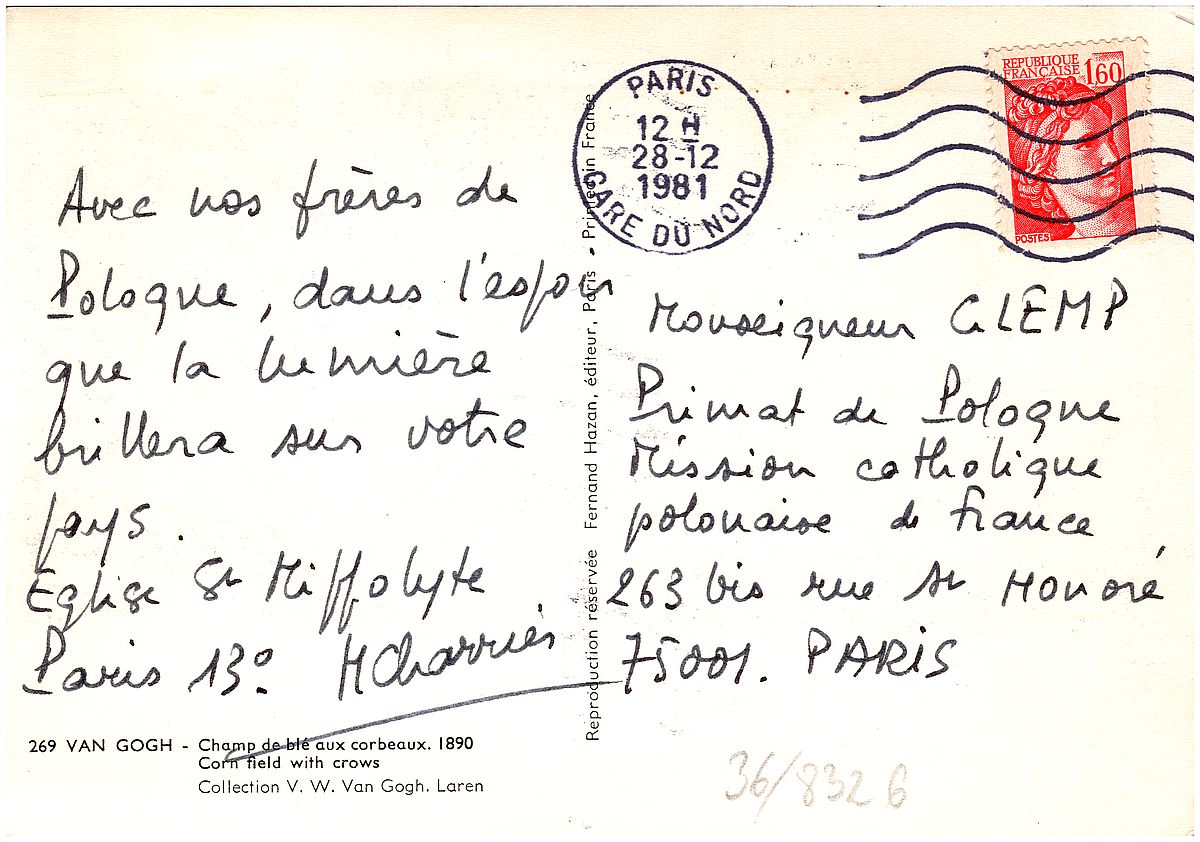 Avec nos frères de
Pologne, dans l'espoir
que la lumière
brillera sur votre
pays.
Eglise St Hippolyte
Paris 13º HCharriés
269 VAN GOGH - Champ de blé aux corbeaux. 1890
Corn field with crows
Collection V. W. Van Gogh. Laren
Reproduction réservée Fernand Hazan, éditeur, Paris - Printed in France
PARIS
12 H
28-12
1981
GARE DU NORD
REPUBLIQUE
FRANÇAISE
1,60
POSTES
Monseigneur GLEMP
Primat de Pologne
Mission catholique
polonaise de France
263 bis rue St Honoré
75001. PARIS
36/8326